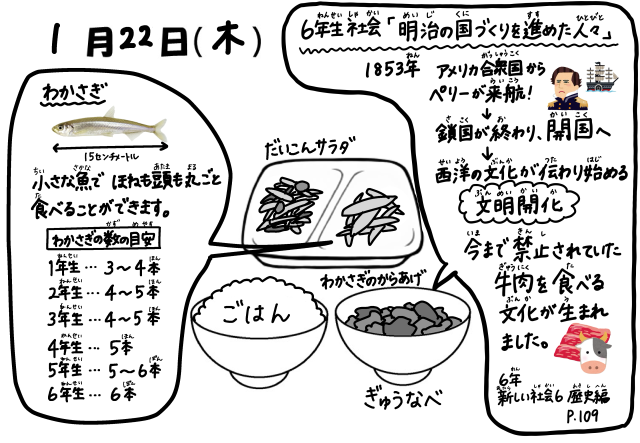 1月22日(木)
わかさぎ
15センチメートル
小さな魚で ほねも頭も丸ごと
食べることができます。
わかさぎの数の目安
1年生…3〜4本
2年生…4〜5本
3年生…4〜5本
4年生…5本
5年生…5〜6本
6年生…6本
だいこんサラダ
わかさぎのからあげ
ごはん
ぎゅうなべ
6年生社会「明治の国づくりを進めた人々」
1853年 アメリカ合衆国から
ペリーが来航!
↓
鎖国が終わり、開国へ
↓
西洋の文化が伝わり始める
文明開化
今まで禁止されていた
牛肉を食べる
文化が生まれ
ました。
6年
新しい社会6 歴史編
P.109